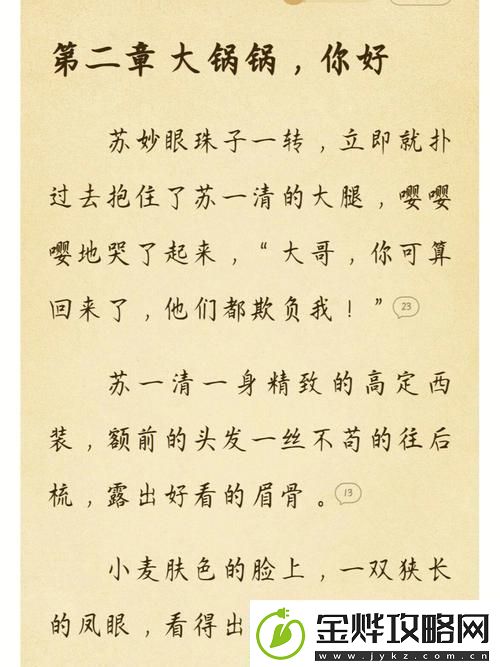 第二章 大锅锅，你好
苏妙眼珠子一转，立即就扑
过去抱住了苏一清的大腿，嘤嘤
嘤地哭了起来，“大哥，你可算
回来了，他们都欺负我！”
23
苏一清一身精致的高定西
装，额前的头发一丝不苟的往后
梳，露出好看的眉骨。
13
小麦肤色的脸上，一双狭长
的凤眼，看得出
金烨攻略网
www.jykz.com.cn